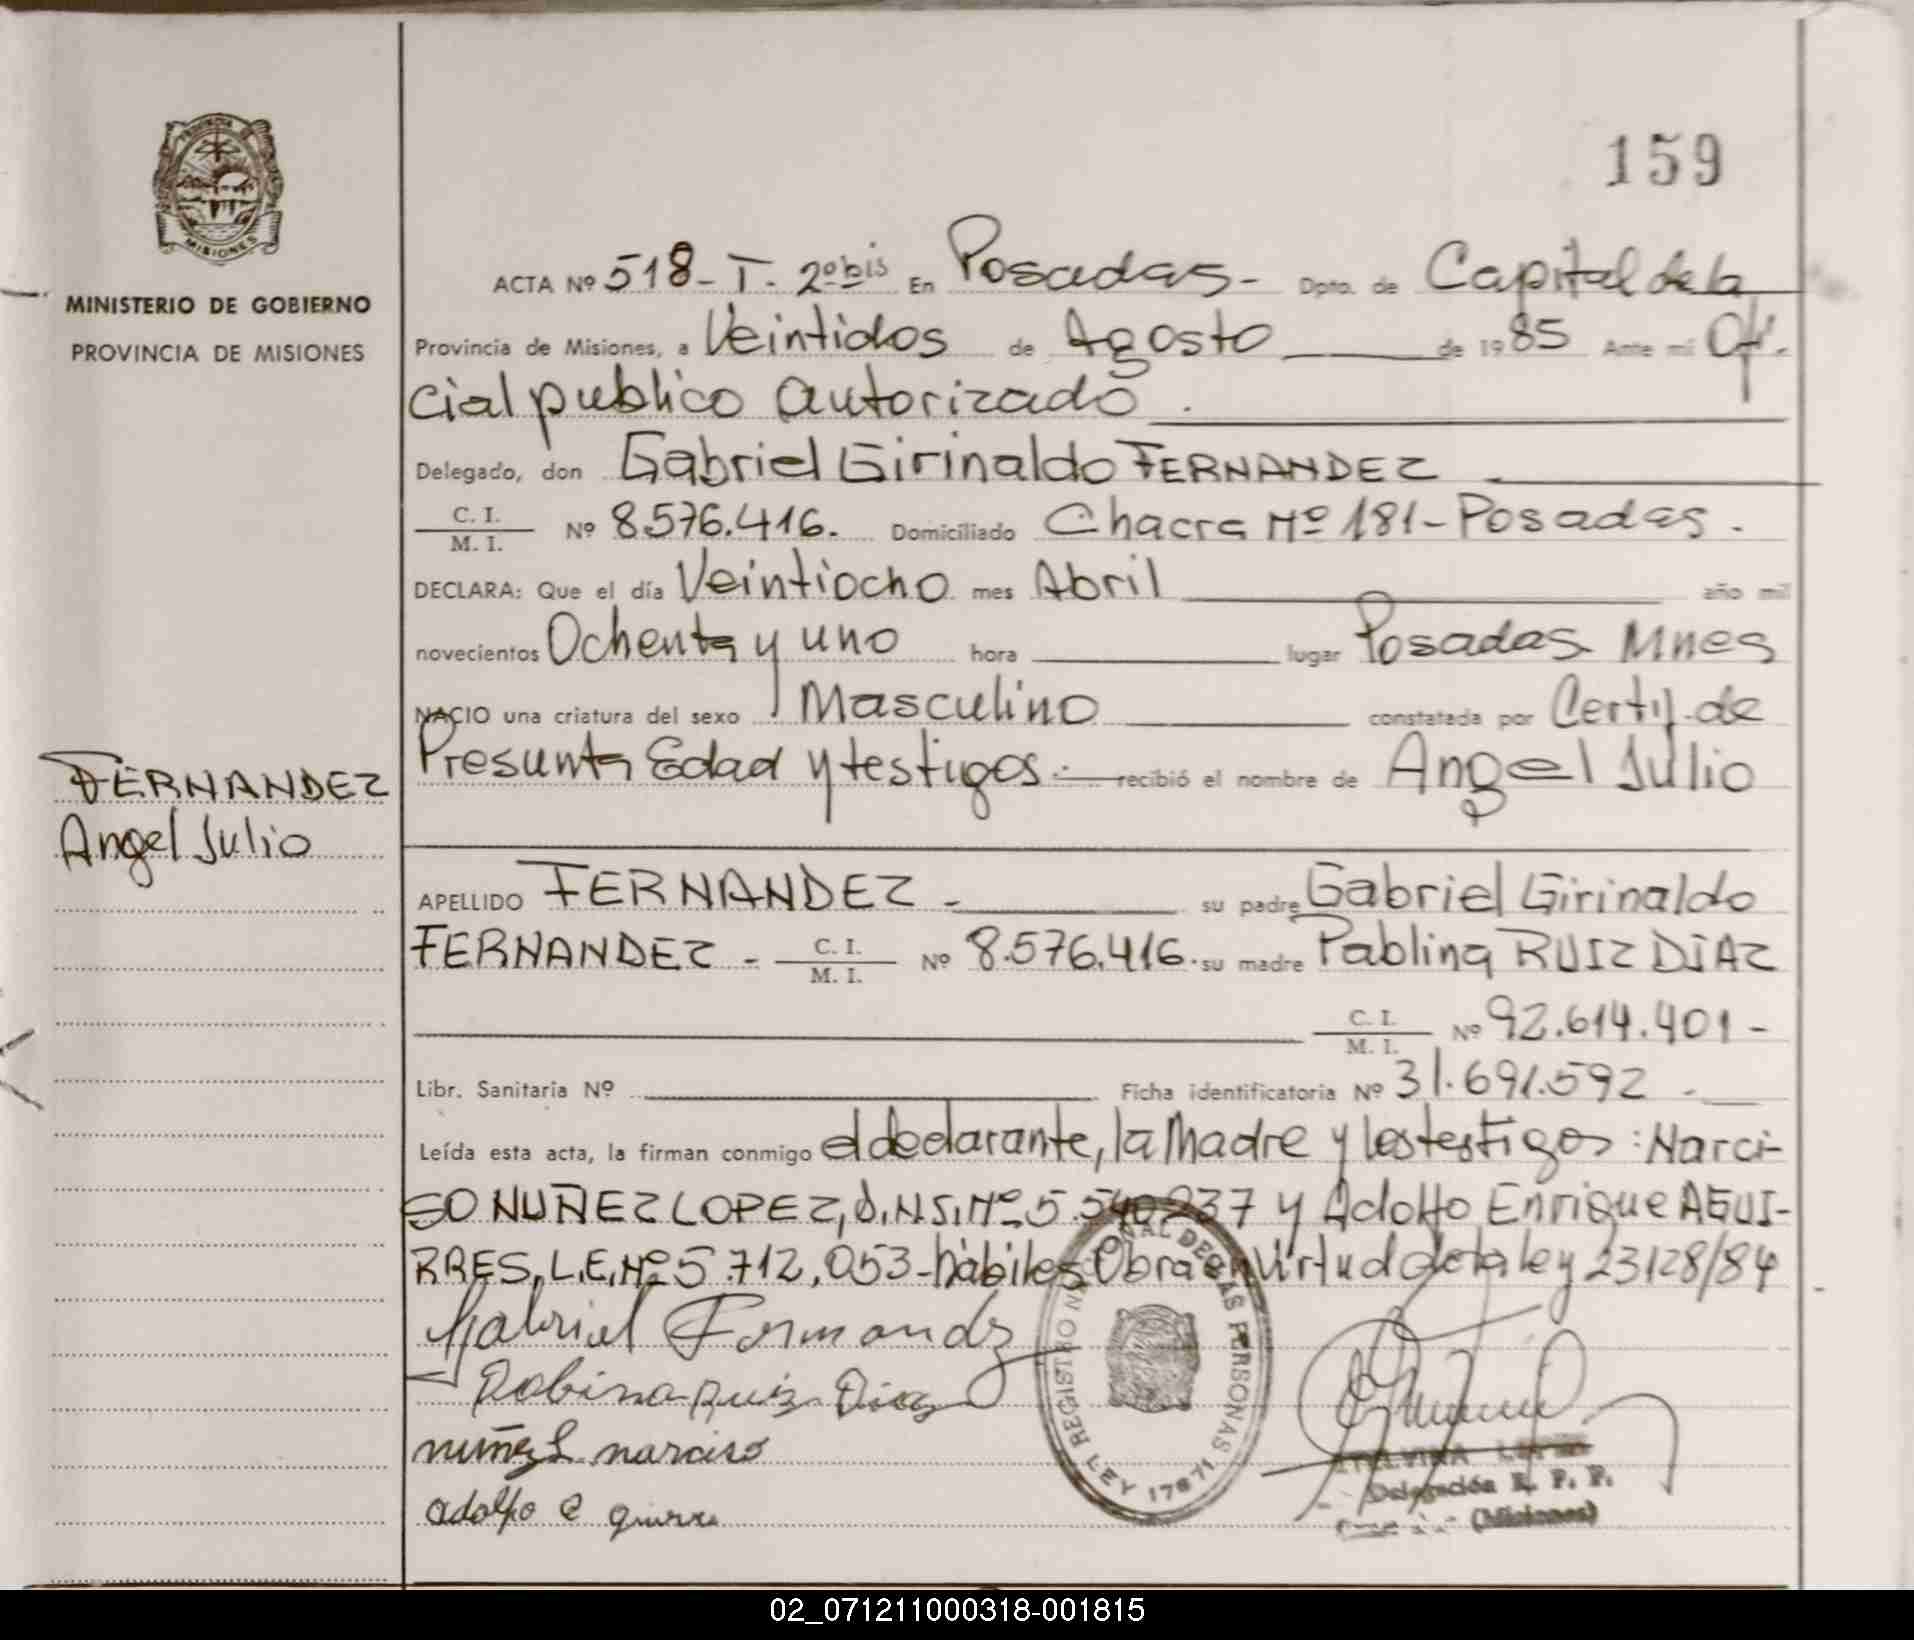 159
PROVINCIA DE
MISIONES
MINISTERIO DE GOBIERNO
PROVINCIA DE MISIONES
FERNANDEZ
Angel Julio
ACTA Nº 518- T. 2º bis En Posadas- Dpto. de Capital de la
Provincia de Misiones, a Veintidos de Agosto de 1985 Ante mi Ofi.
cial publico autorizado.
Delegado, don Gabriel Girinaldo FERNANDEZ
C. I. / M. I. Nº 8.576.416. Domiciliado Chacra Nº 181-Posadas.
DECLARA: Que el día Veintiocho mes Abril año mil
novecientos Ochenta y uno hora lugar Posadas Mnes
NACIO una criatura del sexo Masculino constatada por Certif. de
Presunta Edad y testigos.- recibió el nombre de Angel Julio
APELLIDO FERNANDEZ - su padre Gabriel Girinaldo
FERNANDEZ - C. I. / M. I. Nº 8.576.416. su madre Pablina RUIZ DIAZ
C. I. / M. I. Nº 92.614.401-
Libr. Sanitaria Nº Ficha identificatoria Nº 31.691.592 -
Leída esta acta, la firman conmigo el declarante, la Madre y los testigos: Narci-
SO NUÑEZ LOPEZ, D.N.I. Nº 5.540237 y Adolfo Enrique AGUI-
RRES, L.E. Nº 5.712.053-hábiles Obra en Virtud de la ley 23128/84
Gabriel Fernandz
Pabina Ruiz Diaz
nuñez L narciso
adolfo e
REGISTRO NACIONAL DE LAS PERSONAS
LEY 17671
Delegación R. P. P.
(Misiones)
02_071211000318-001815